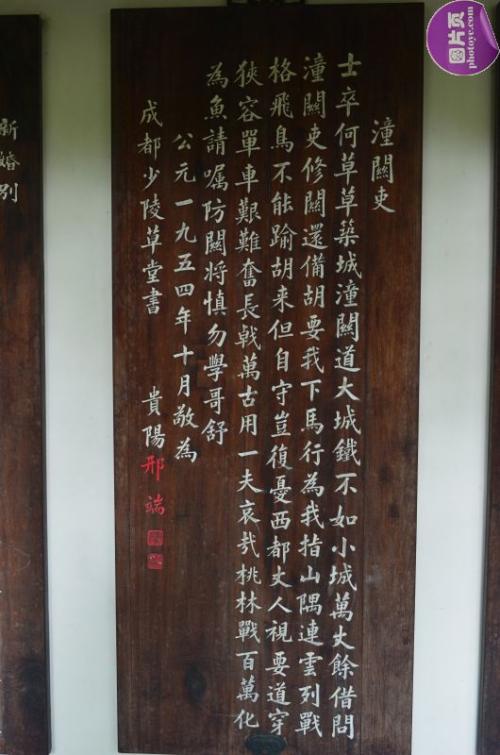 图片页
photoye.com
潼關吏
士卒何草草築城潼關道大城鐵不如小城萬丈餘借問
潼關吏修關還備胡要我下馬行為我指山隅連雲列戰
格飛鳥不能踰胡来但自守豈復憂西都丈人視要道窄
狹容單車艱難奮長戟萬古用一夫哀哉桃林戰百萬化
為魚請囑防關將慎勿學哥舒
公元一九五四年十月敬為
成都少陵草堂書 貴陽邢端
新婚別